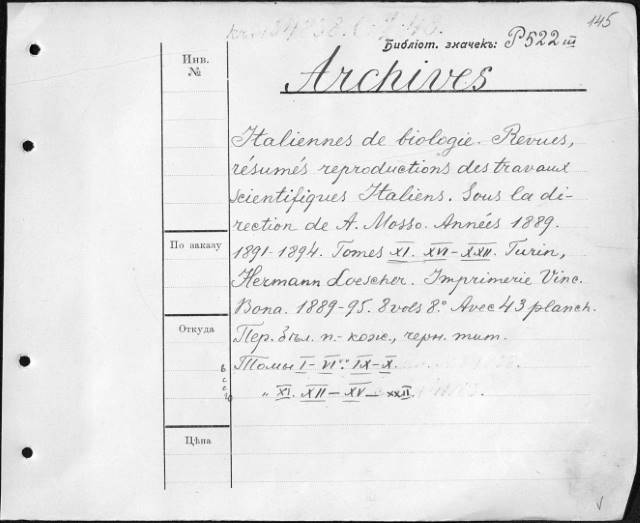 145
Библіот. значекъ: P522 III
Инв.
№
Archives
Italiennes de biologie. Revues,
résumés reproductions des travaux
scientifiques Italiens. Sous la di-
rection de A. Mosso. Années 1889.
1891-1894. Tomes XI. XVI-XXII. Turin,
По заказу
Hermann Loescher. Imprimerie Vinc.
Bona. 1889-95. 8 vols 8.° Avec 43 planch.
Откуда
Пер. бѣл. п.-кож., черн. тит.
Томы I-VI IX-X.
всего
" XI. XII-XV- XXII.
Цѣна